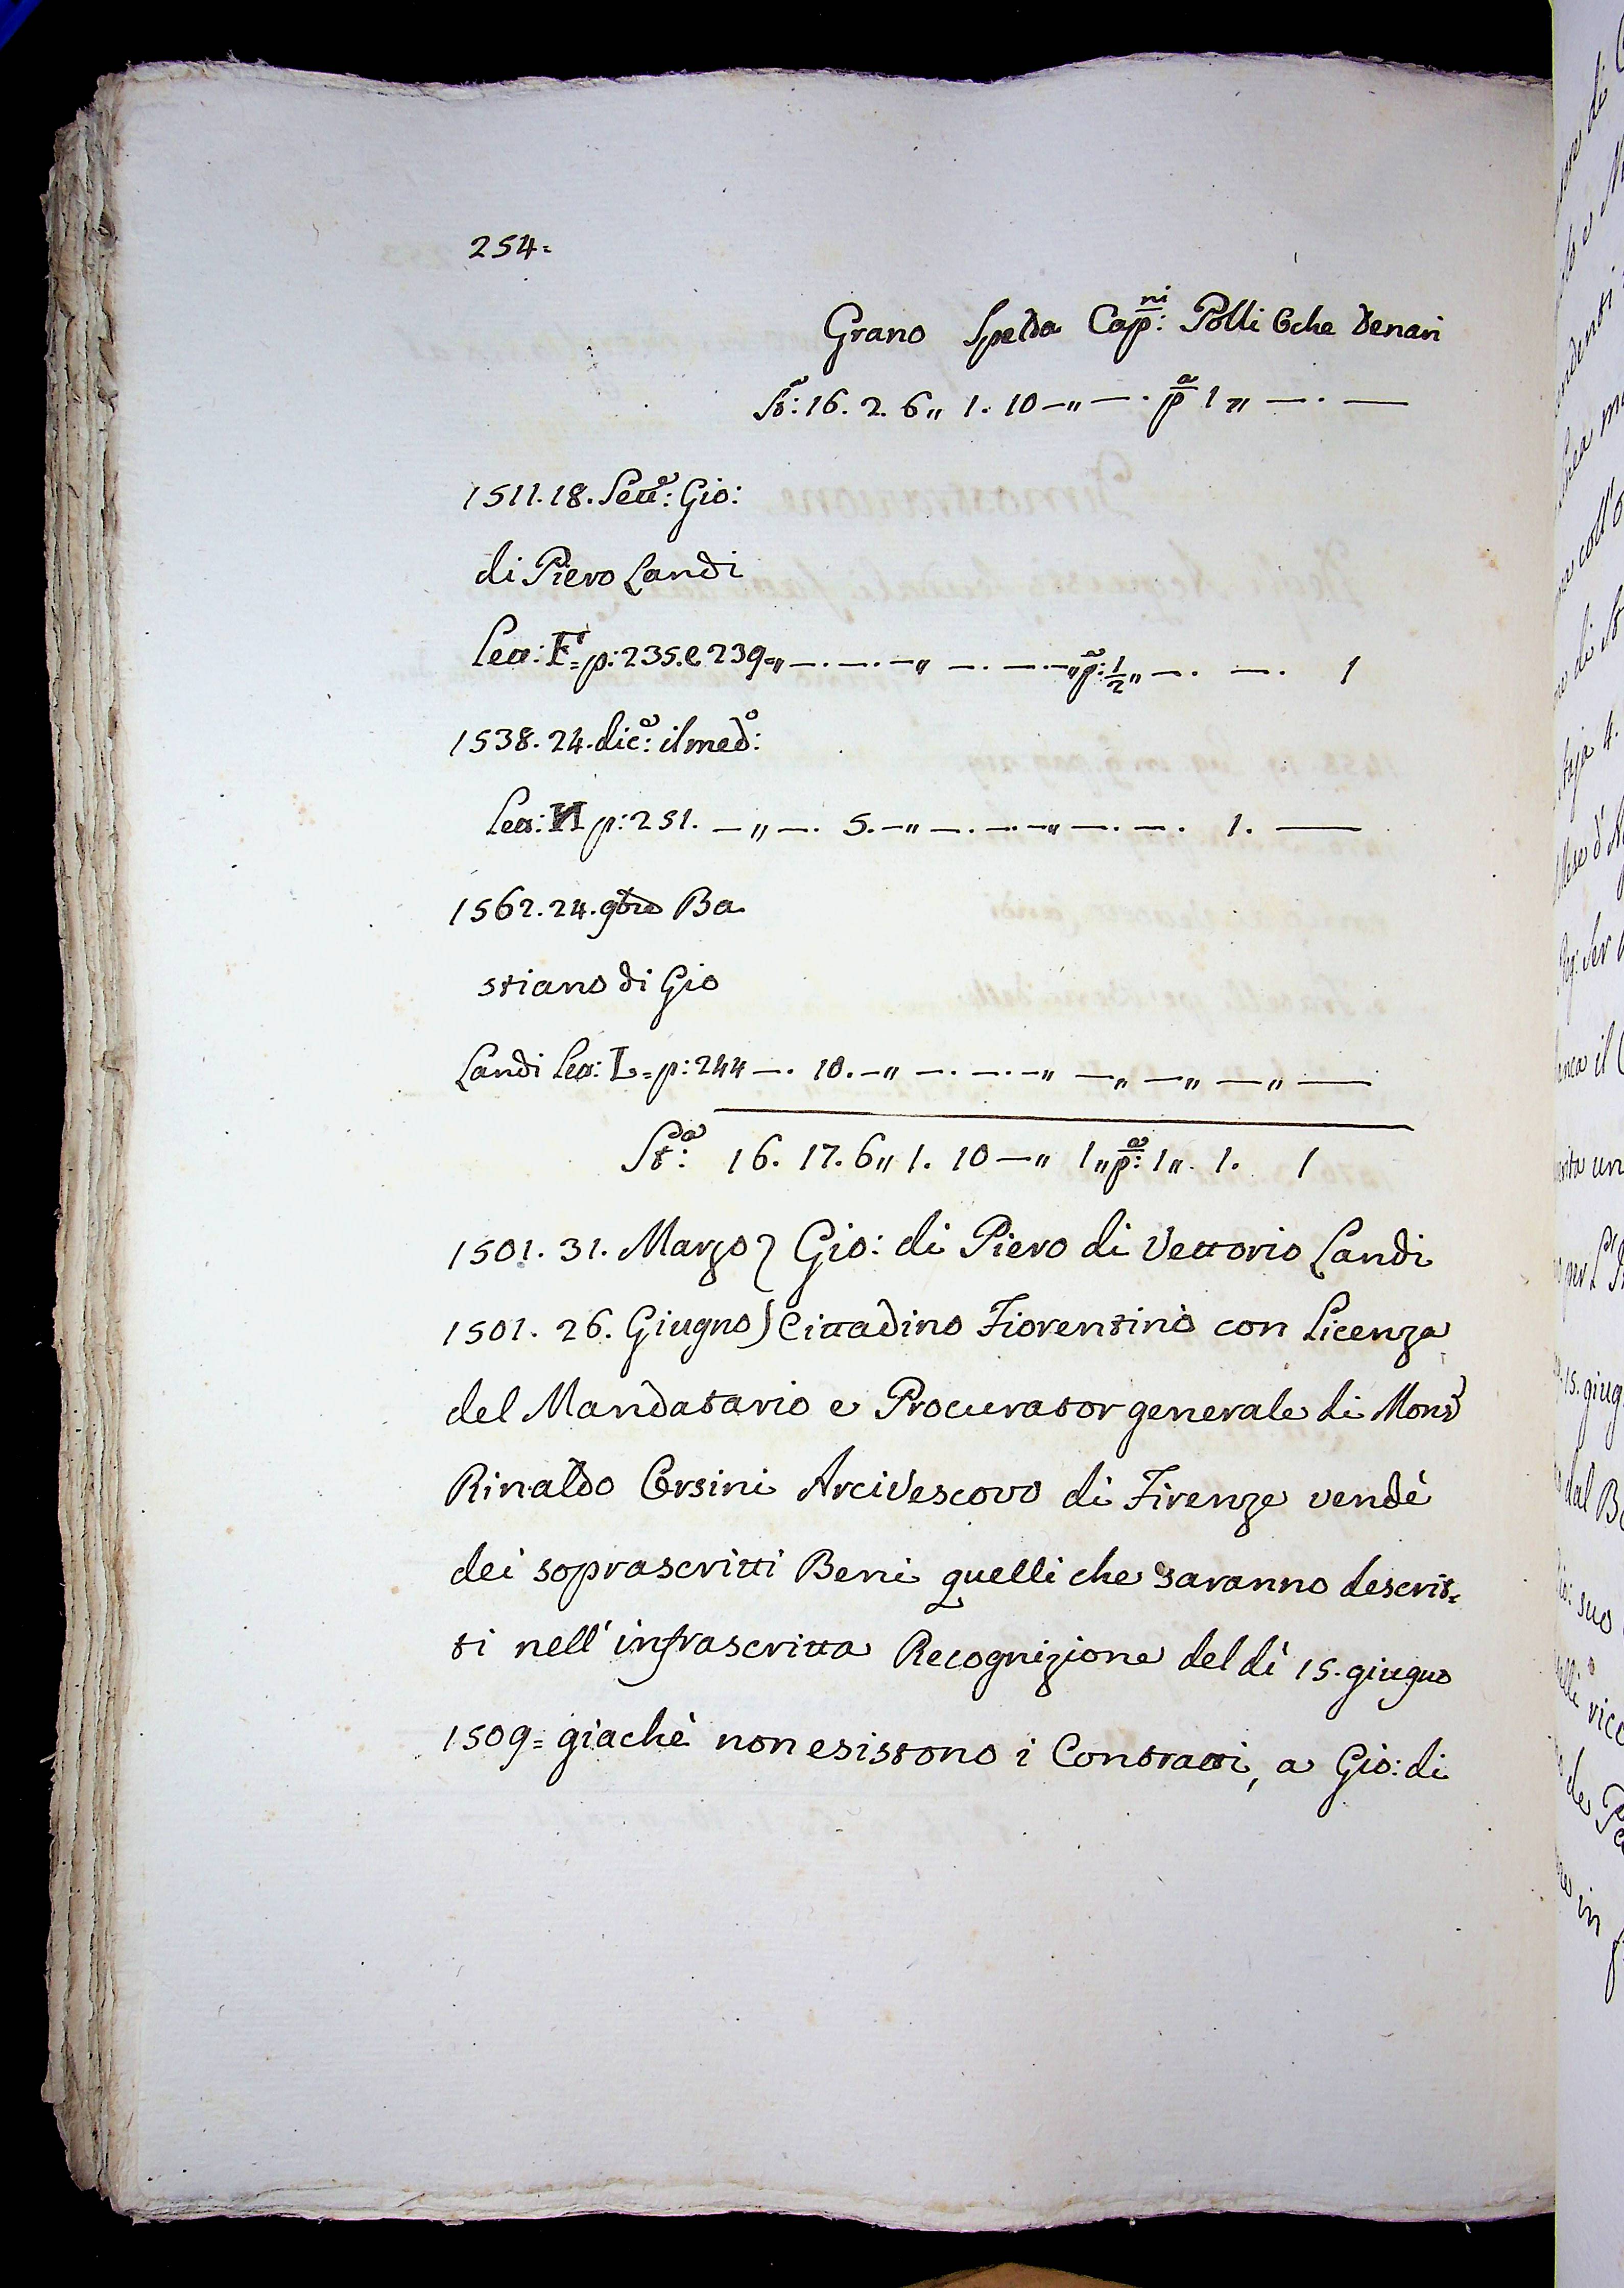 254=
Grano Spelda Cap:ni Polli Oche Denari
St:a 16. 2. 6„ 1. 10 —„ — . p:a 1 „ — . —
1511. 18. Sett:e Gio:
di Piero Landi
Lett: F= p: 235. e 239=„ — . — . —„ — . — . —„ p:a ½„ — . — . 1
1538. 24. dic:e il med:o
Lett: N p: 251. — „ — . 5. —„ — . — . —„ — . — . 1. —
1562. 24. 9bre Ba
stiano di Gio
Landi Lett: L= p: 244 — . 10. —„ — . — . —„ —„ —„ —„ —
St:a 16. 17. 6„ 1. 10 —„ 1„ p:a 1„. 1. 1
1501. 31. Marzo) Gio: di Piero di Vettorio Landi
1501. 26. Giugno) Cittadino Fiorentino con Licenza
del Mandatario e Procurator generale di Mons:r
Rinaldo Orsini Arcivescovo di Firenze vendè
dei soprascritti Beni quelli che saranno descrit=
ti nell' infrascritta Recognizione del dì 15. giugno
1509= giachè non esistono i Contratti, a Gio: di